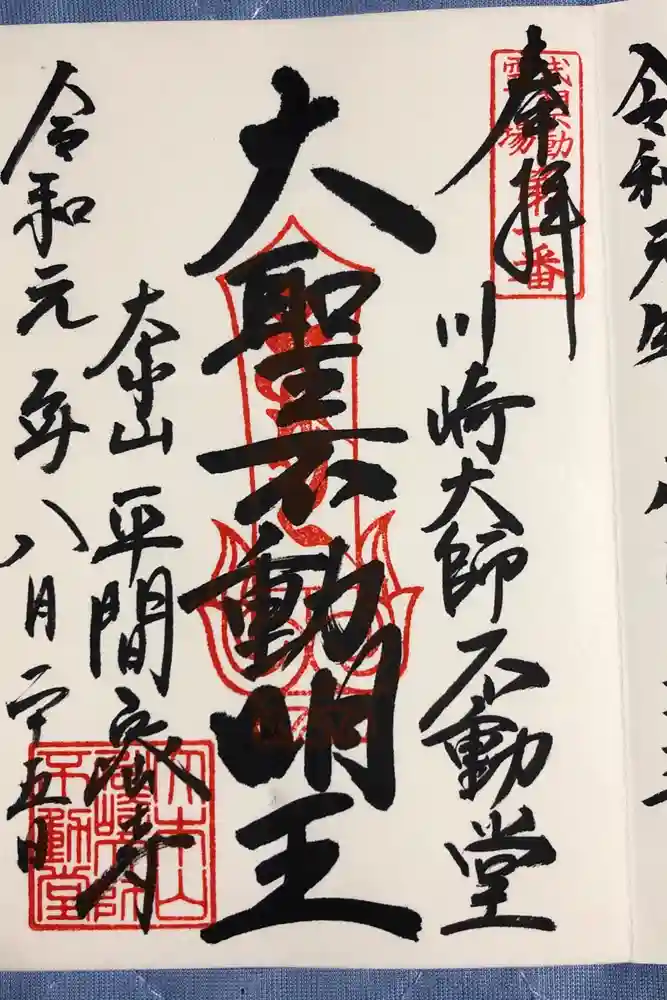 令和元年
奉拝
武相不動
霊場
第一番
川崎大師不動堂
大聖不動明王
大本山 平間密寺
大本山
川崎大師
不動堂
令和元年八月二十五日